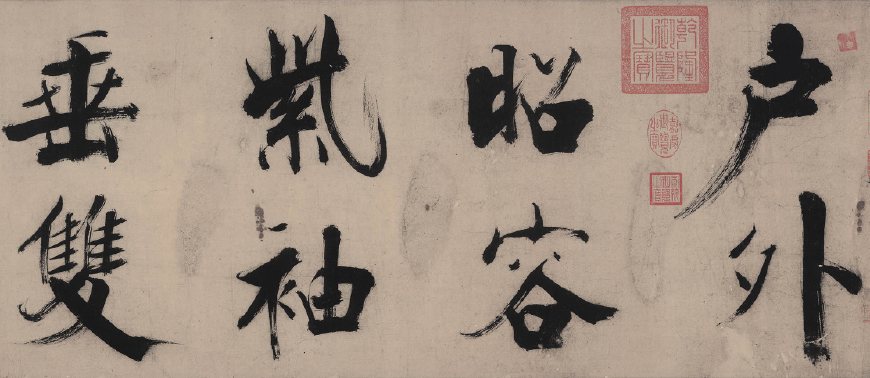 户外
昭容
紫袖
垂雙
乾隆御覽之寶